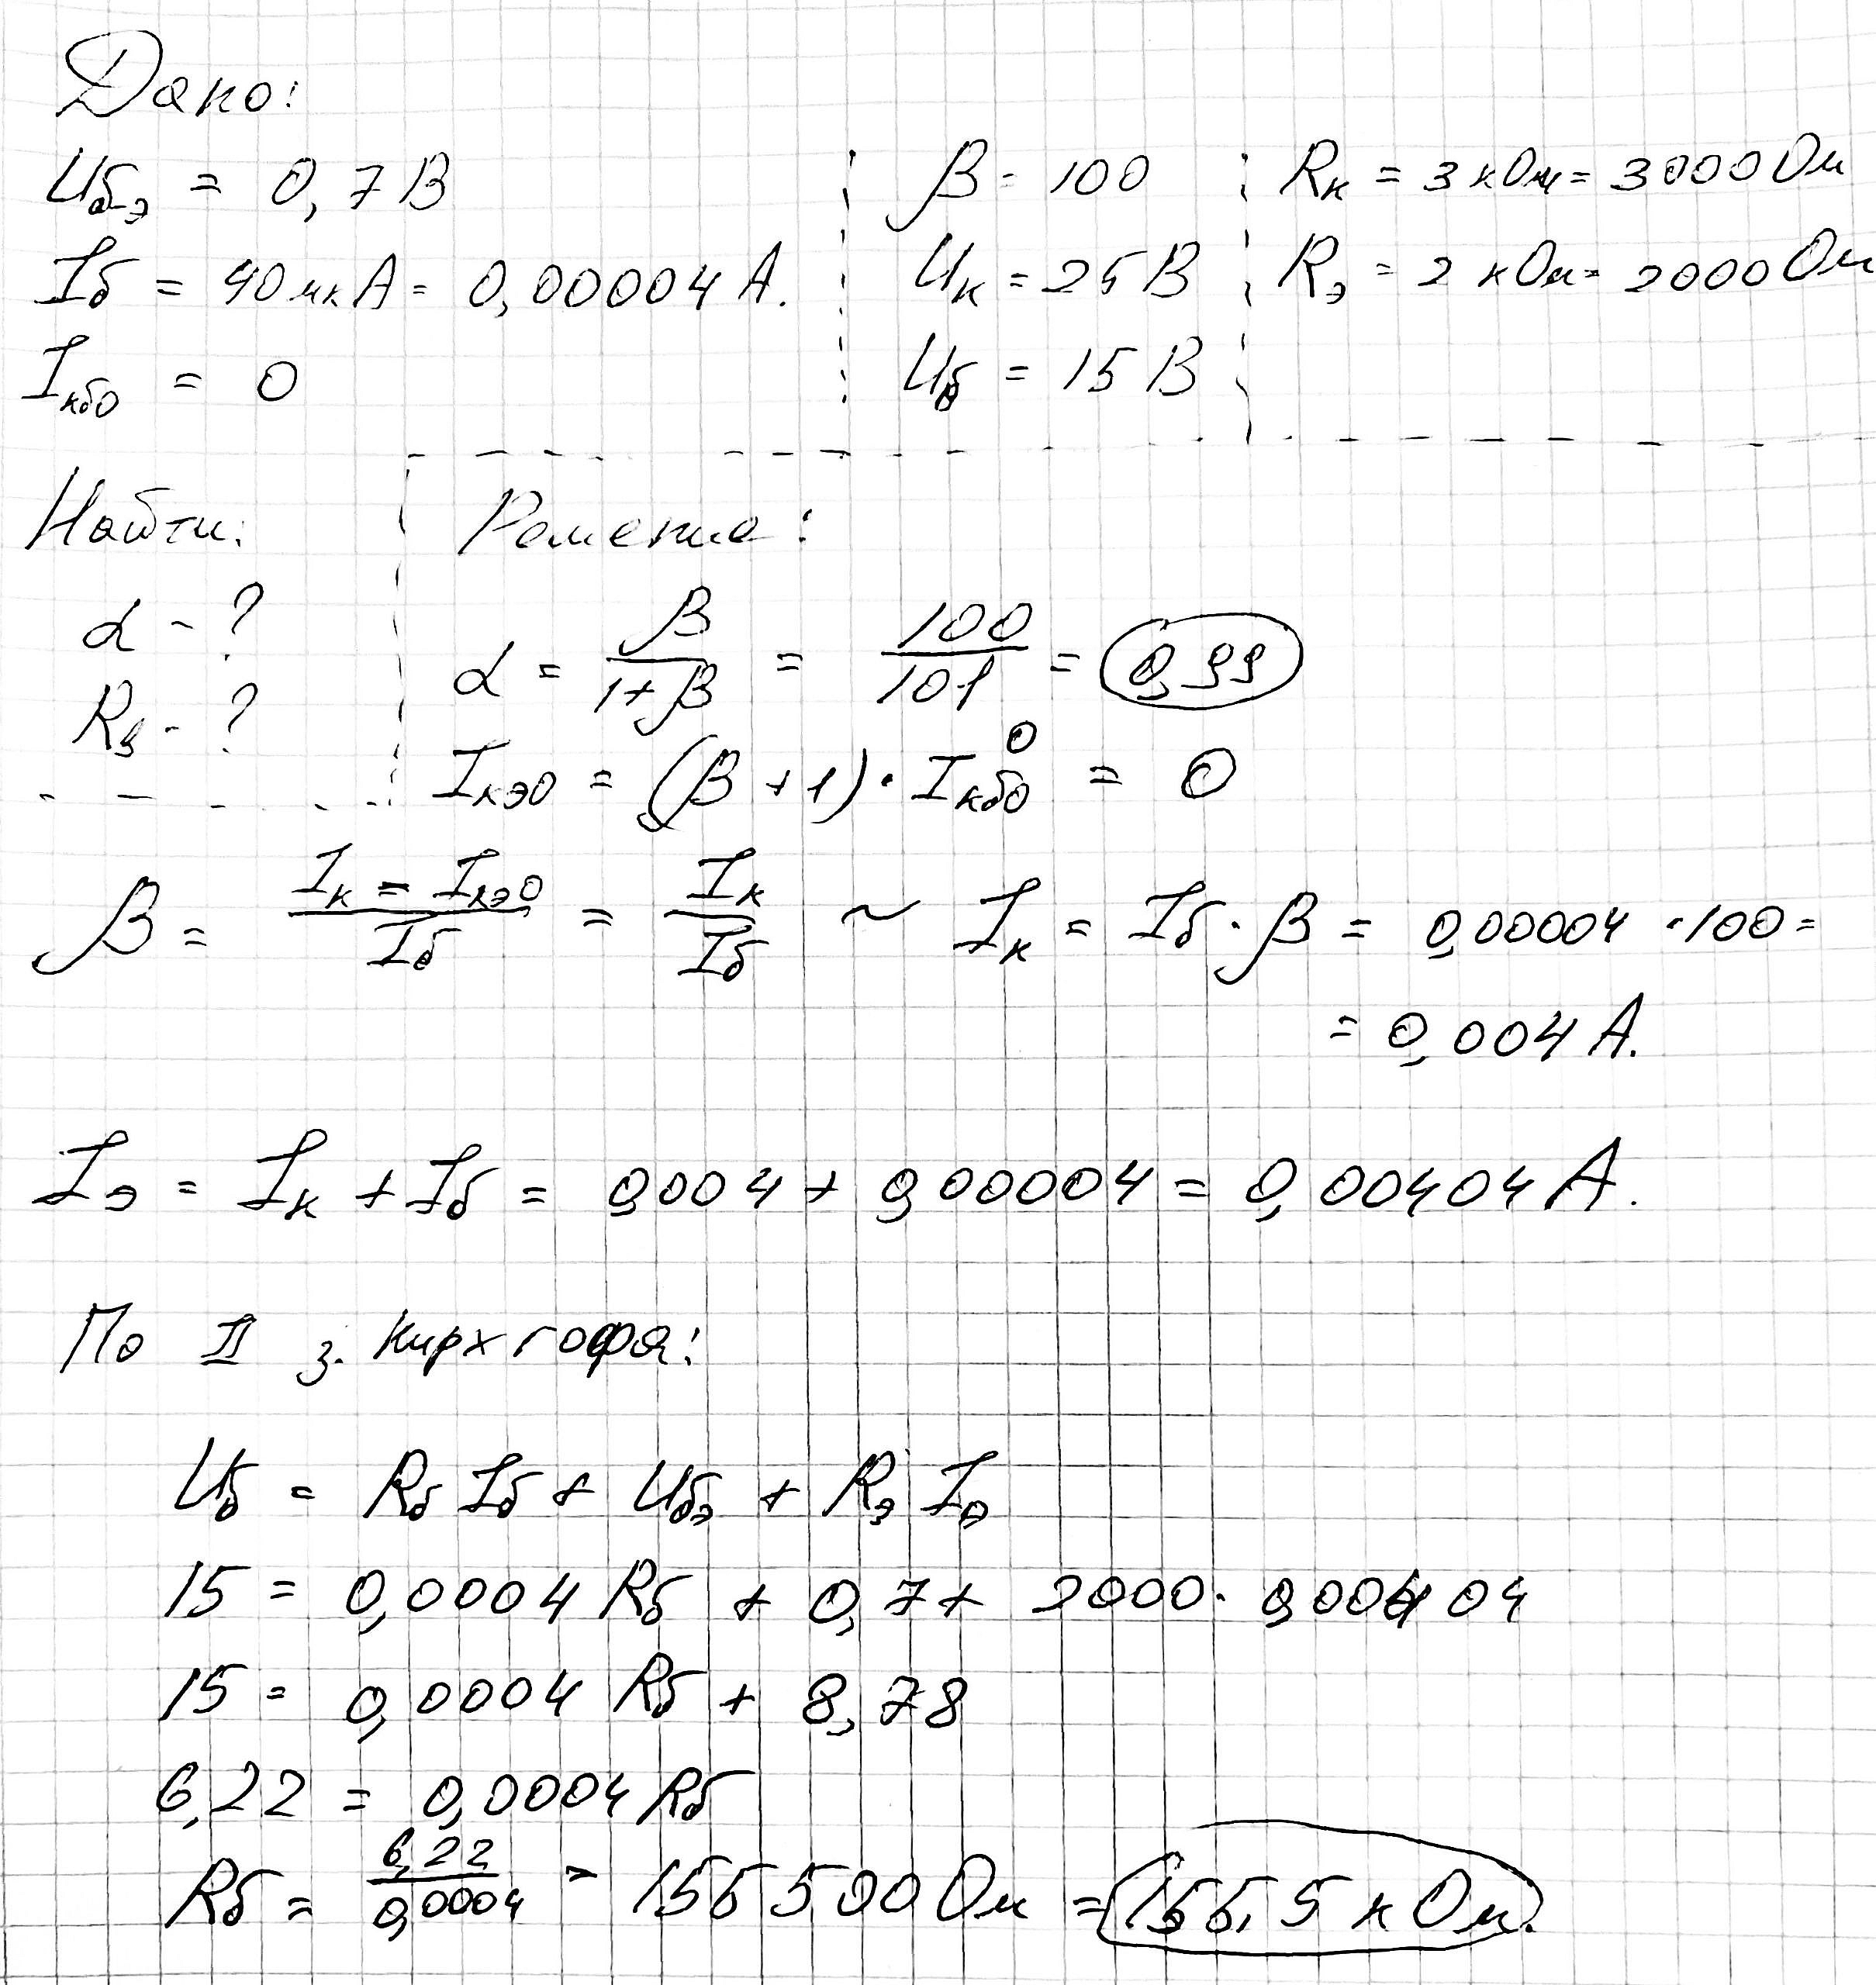 Дано:
Uбэ = 0,7 В ¦ β = 100 ¦ Rк = 3 кОм = 3000 Ом
Iб = 40 мкА = 0,00004 А. ¦ Uк = 25 В ¦ Rэ = 2 кОм = 2000 Ом
Iкбо = 0 ¦ Uб = 15 В
Найти: Решение:
α - ? α = β/(1+β) = 100/101 = 0,99
Rб - ? Iкэо = (β + 1) · Iкбо⁰ = 0
β = (Iк - Iкэо)/Iб = Iк/Iб ~ Iк = Iб · β = 0,00004 · 100 =
= 0,004 А.
Iэ = Iк + Iб = 0,004 + 0,00004 = 0,00404 А.
По II з. Кирхгофа:
Uб = Rб Iб + Uбэ + Rэ Iэ
15 = 0,0004 Rб + 0,7 + 2000 · 0,00404
15 = 0,0004 Rб + 8,78
6,22 = 0,0004 Rб
Rб = 6,22/0,0004 = 155 500 Ом = 155,5 кОм.